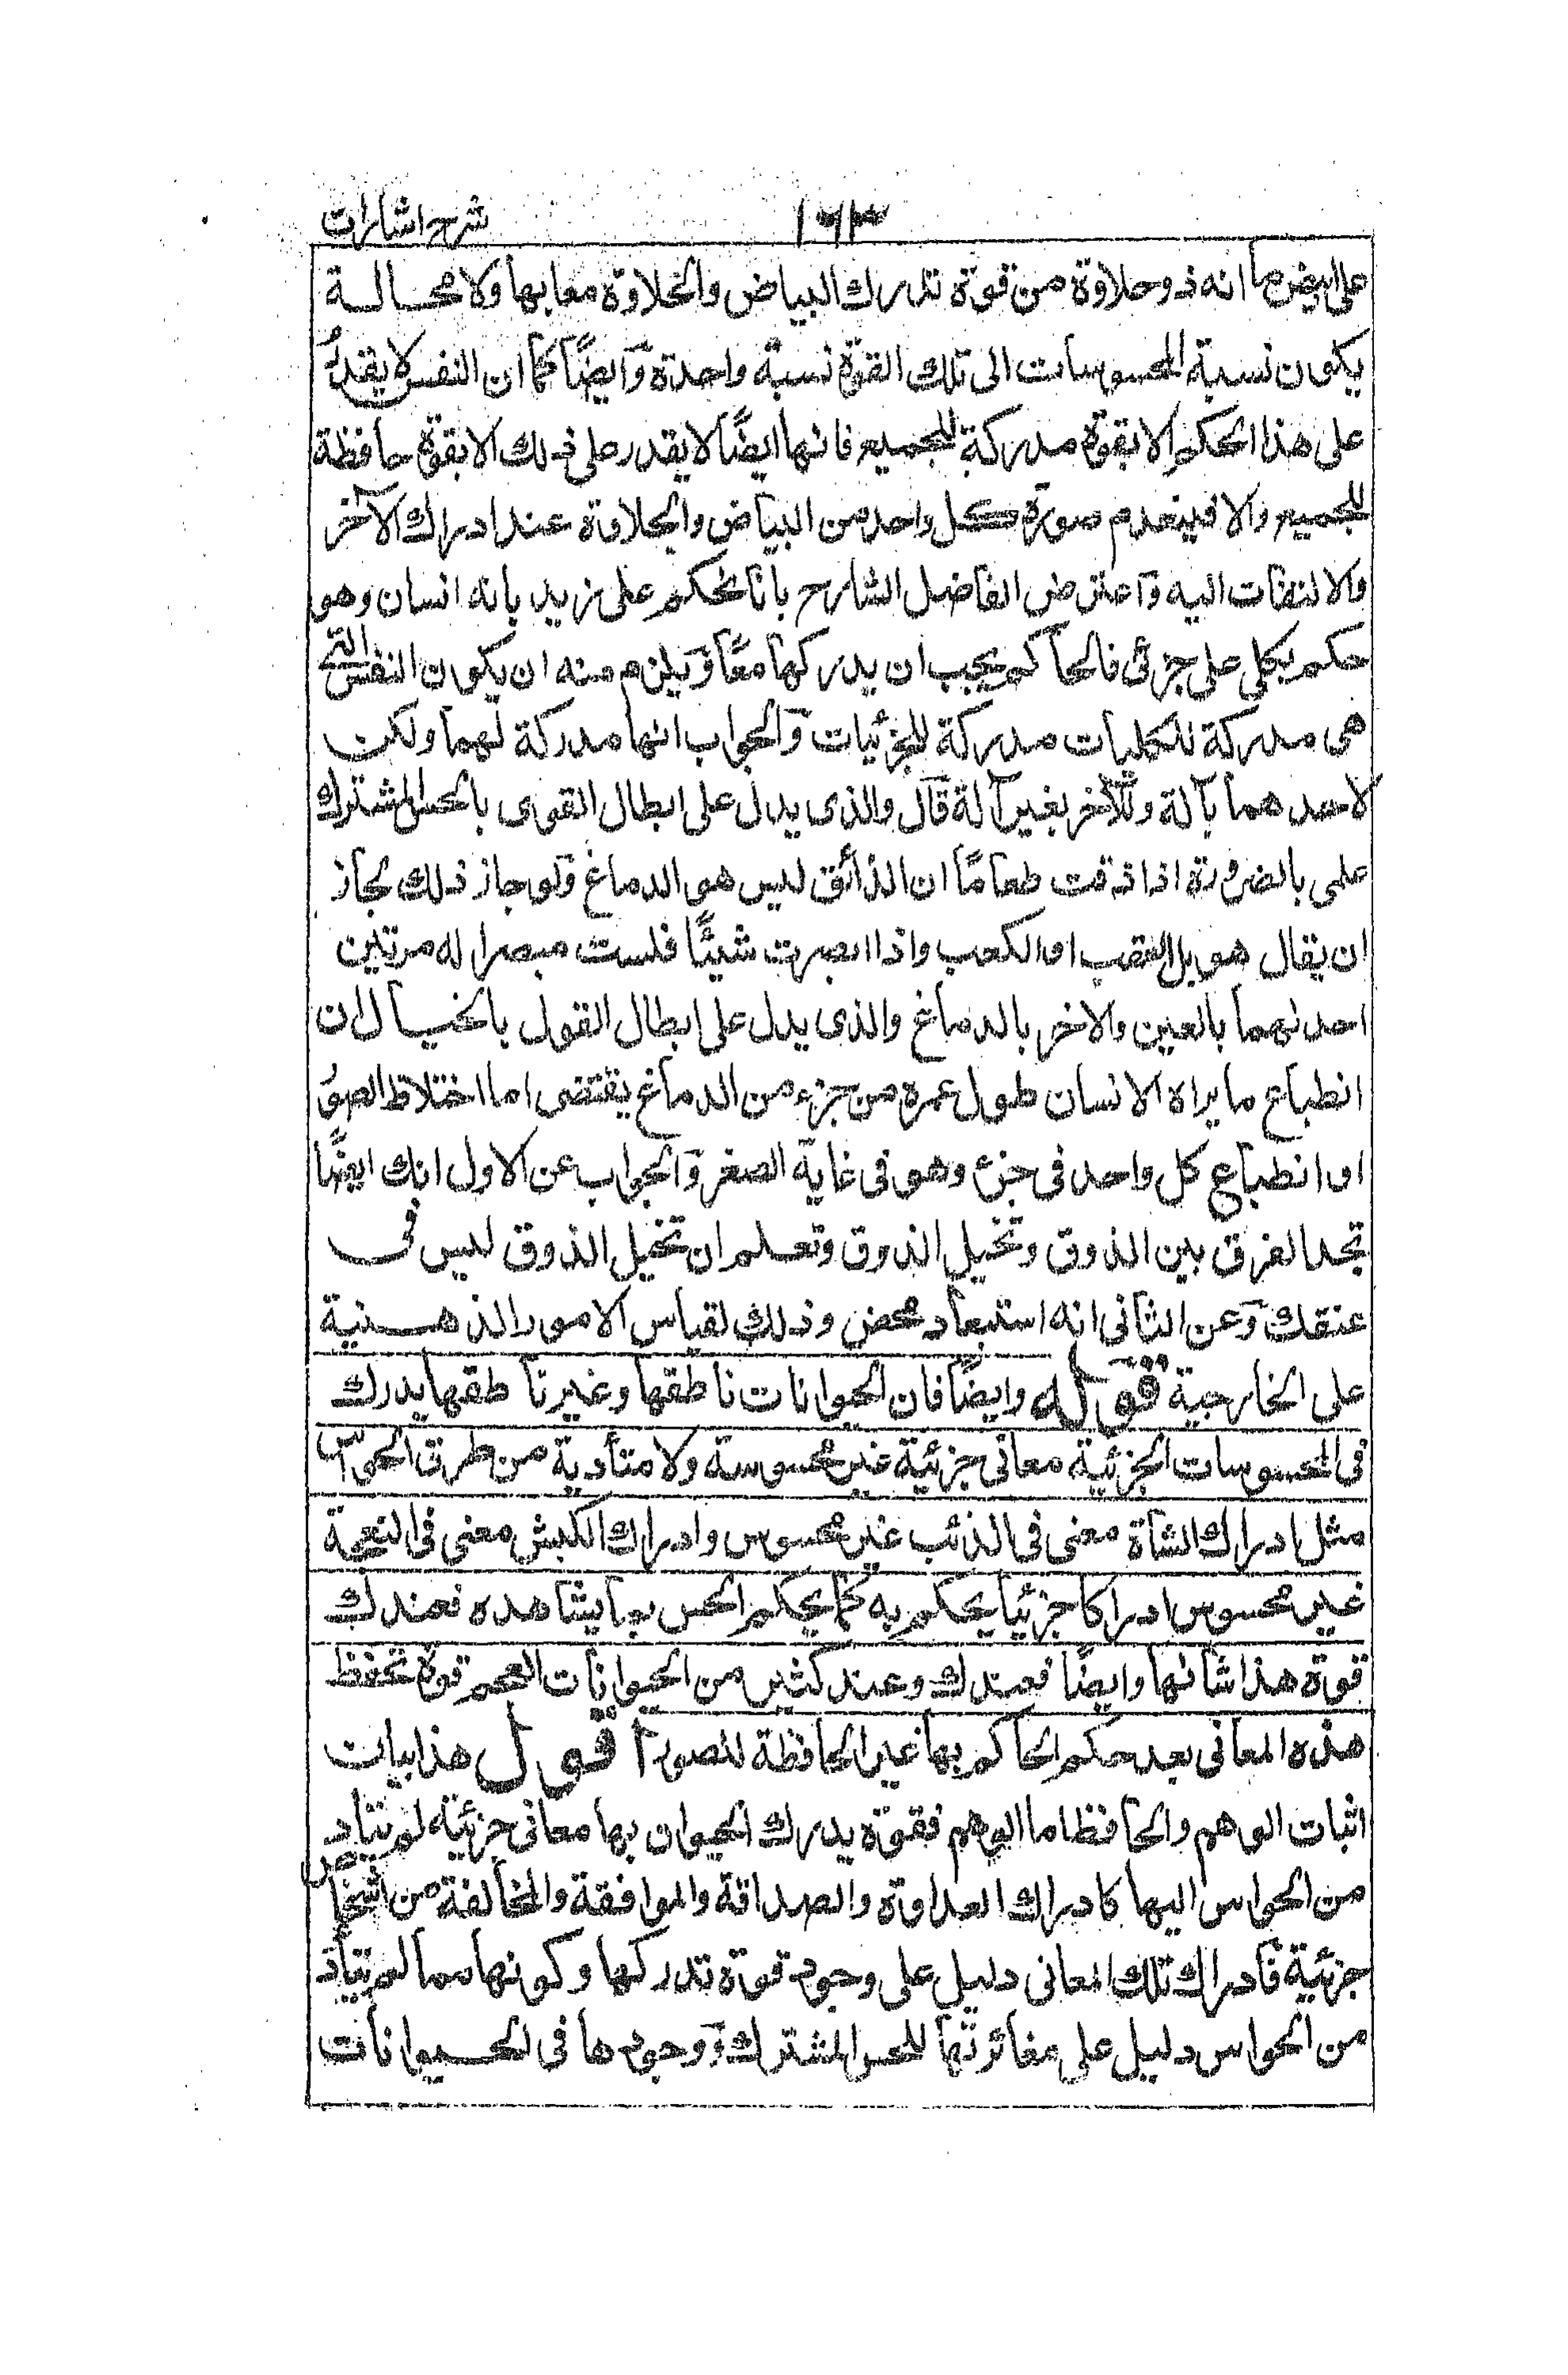 شرح اشارات
على ابيض ما انه ذو حلاوة من قوة تدرك البياض والحلاوة معا بها ولا محالة
يكون نسبة المحسوسات الى تلك القوة نسبة واحدة وايضًا كما ان النفس لا يقدر
على هذا الحكم الا بقوة مدركة للجميع فانها ايضًا لا يقدر على ذلك الا بقوة حافظة
للجميع والا فينعدم صورة كل واحد من البياض والحلاوة عند ادراك الآخر
والالتفات اليه وآعترض الفاضل الشارح بانا نحكم على زيد بانه انسان وهو
حكم بكلى على جزئى فالحاكم يجب ان يدركهما معًا ويلزم منه ان يكون النفس التى
هى مدركة للكليات مدركة للجزئيات والجواب انها مدركة لهما ولكن
لاحدهما بآلة وللآخر بغير آلة قال والذى يدل على ابطال القوى بالحس المشترك
علمى بالضرورة اذا ذقت طعامًا ان الذائق ليس هو الدماغ ولو جاز ذلك لجاز
ان يقال هو بل العقب او الكعب واذا ابصرت شيئًا فلست مبصرا له مرتين
احدٰهما بالعين والاخر بالدماغ والذى يدل على ابطال القول بالخيال ان
انطباع ما يراه الانسان طول عمره من جزء من الدماغ يقتضى اما اختلاط الصور
او انطباع كل واحد فى جزء وهو فى غاية الصغر والجواب عن الاول انك ايضًا
تجد الفرق بين الذوق وتخيل الذوق وتعلم ان تخيل الذوق ليس فى
عنقك وعن الثانى انه استبعاد محض وذلك لقياس الامور الذهنية
على الخارجية قوله وايضًا فان الحيوانات ناطقها وغير ناطقها يدرك
فى المحسوسات الجزئية معانى جزئية غير محسوسة ولا متأدية من طرق الحواس
مثل ادراك الشاة معنى فى الذئب غير محسوس وادراك الكبش معنى فى النعجة
غير محسوس ادراكا جزئيا يحكم به كما يحكم الحس بما يشاهده فعندك
قوة هذا شانها وايضًا فعندك وعند كثير من الحيوانات العجم قوة تحفظ
هذه المعانى بعد حكم الحاكم بها غير الحافظة للصور اقول هذا بيان
اثبات الوهم والحافظ اما الوهم فقوة يدرك الحيوان بها معانى جزئية لم يتاد
من الحواس اليها كادراك العداوة والصداقة والموافقة والمخالفة من اشخاص
جزئية فادراك تلك المعانى دليل على وجود قوة تدركها وكونها مما لم يتأد
من الحواس دليل على مغائرتها للحس المشترك ووجودها فى الحيوانات